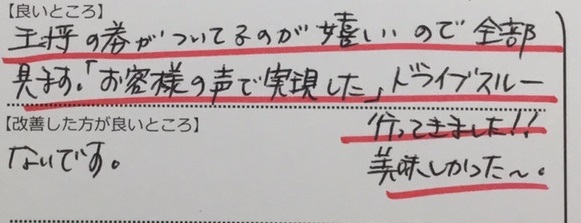 【良いところ】
王将の券がついてるのが嬉しいので全部
見ます。「お客様の声で実現した」ドライブスルー
行ってきました!!
美味しかった〜。
【改善した方が良いところ】
ないです。